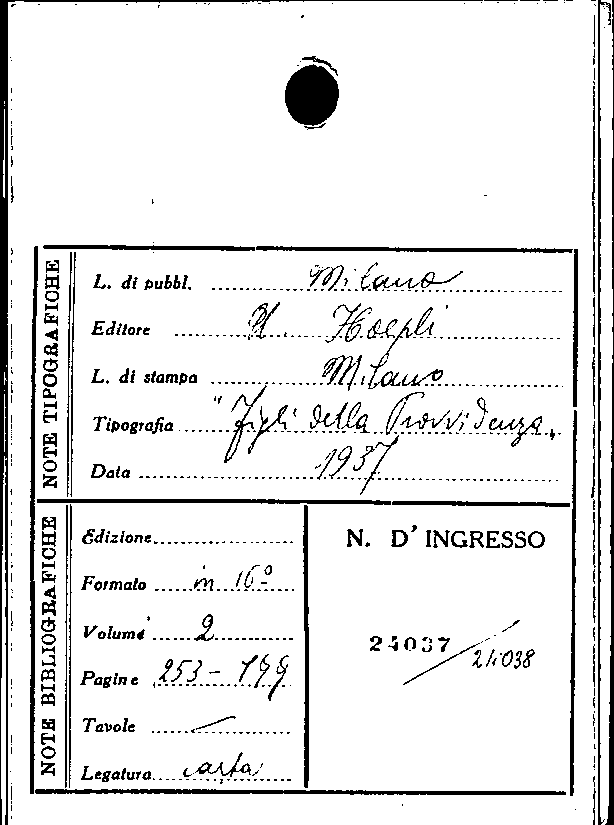 NOTE TIPOGRAFICHE
L. di pubbl. Milano
Editore U. Hoepli
L. di stampa Milano
Tipografia "Figli della Provvidenza"
Data 1937
NOTE BIBLIOGRAFICHE
Edizione
Formato in 16º
Volumi 2
Pagine 253-199
Tavole —
Legatura carta
N. D'INGRESSO
24037/24038